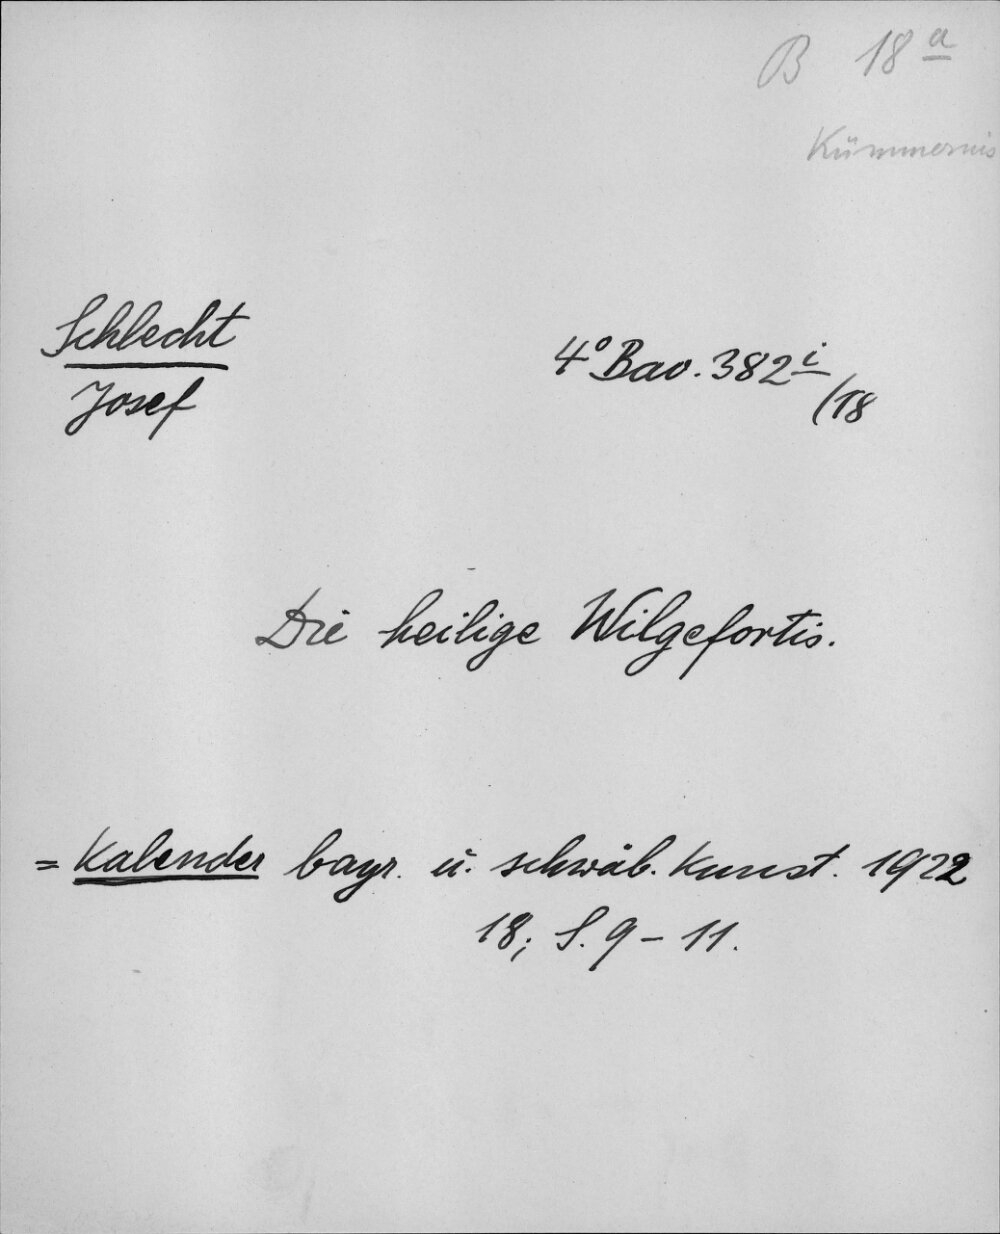 B 18 a
Kümmernis
Schlecht
Josef
4° Bav. 382 i/18
Die heilige Wilgefortis.
= Kalender bayr. u. schwäb. Kunst. 1922
18; S. 9 - 11.